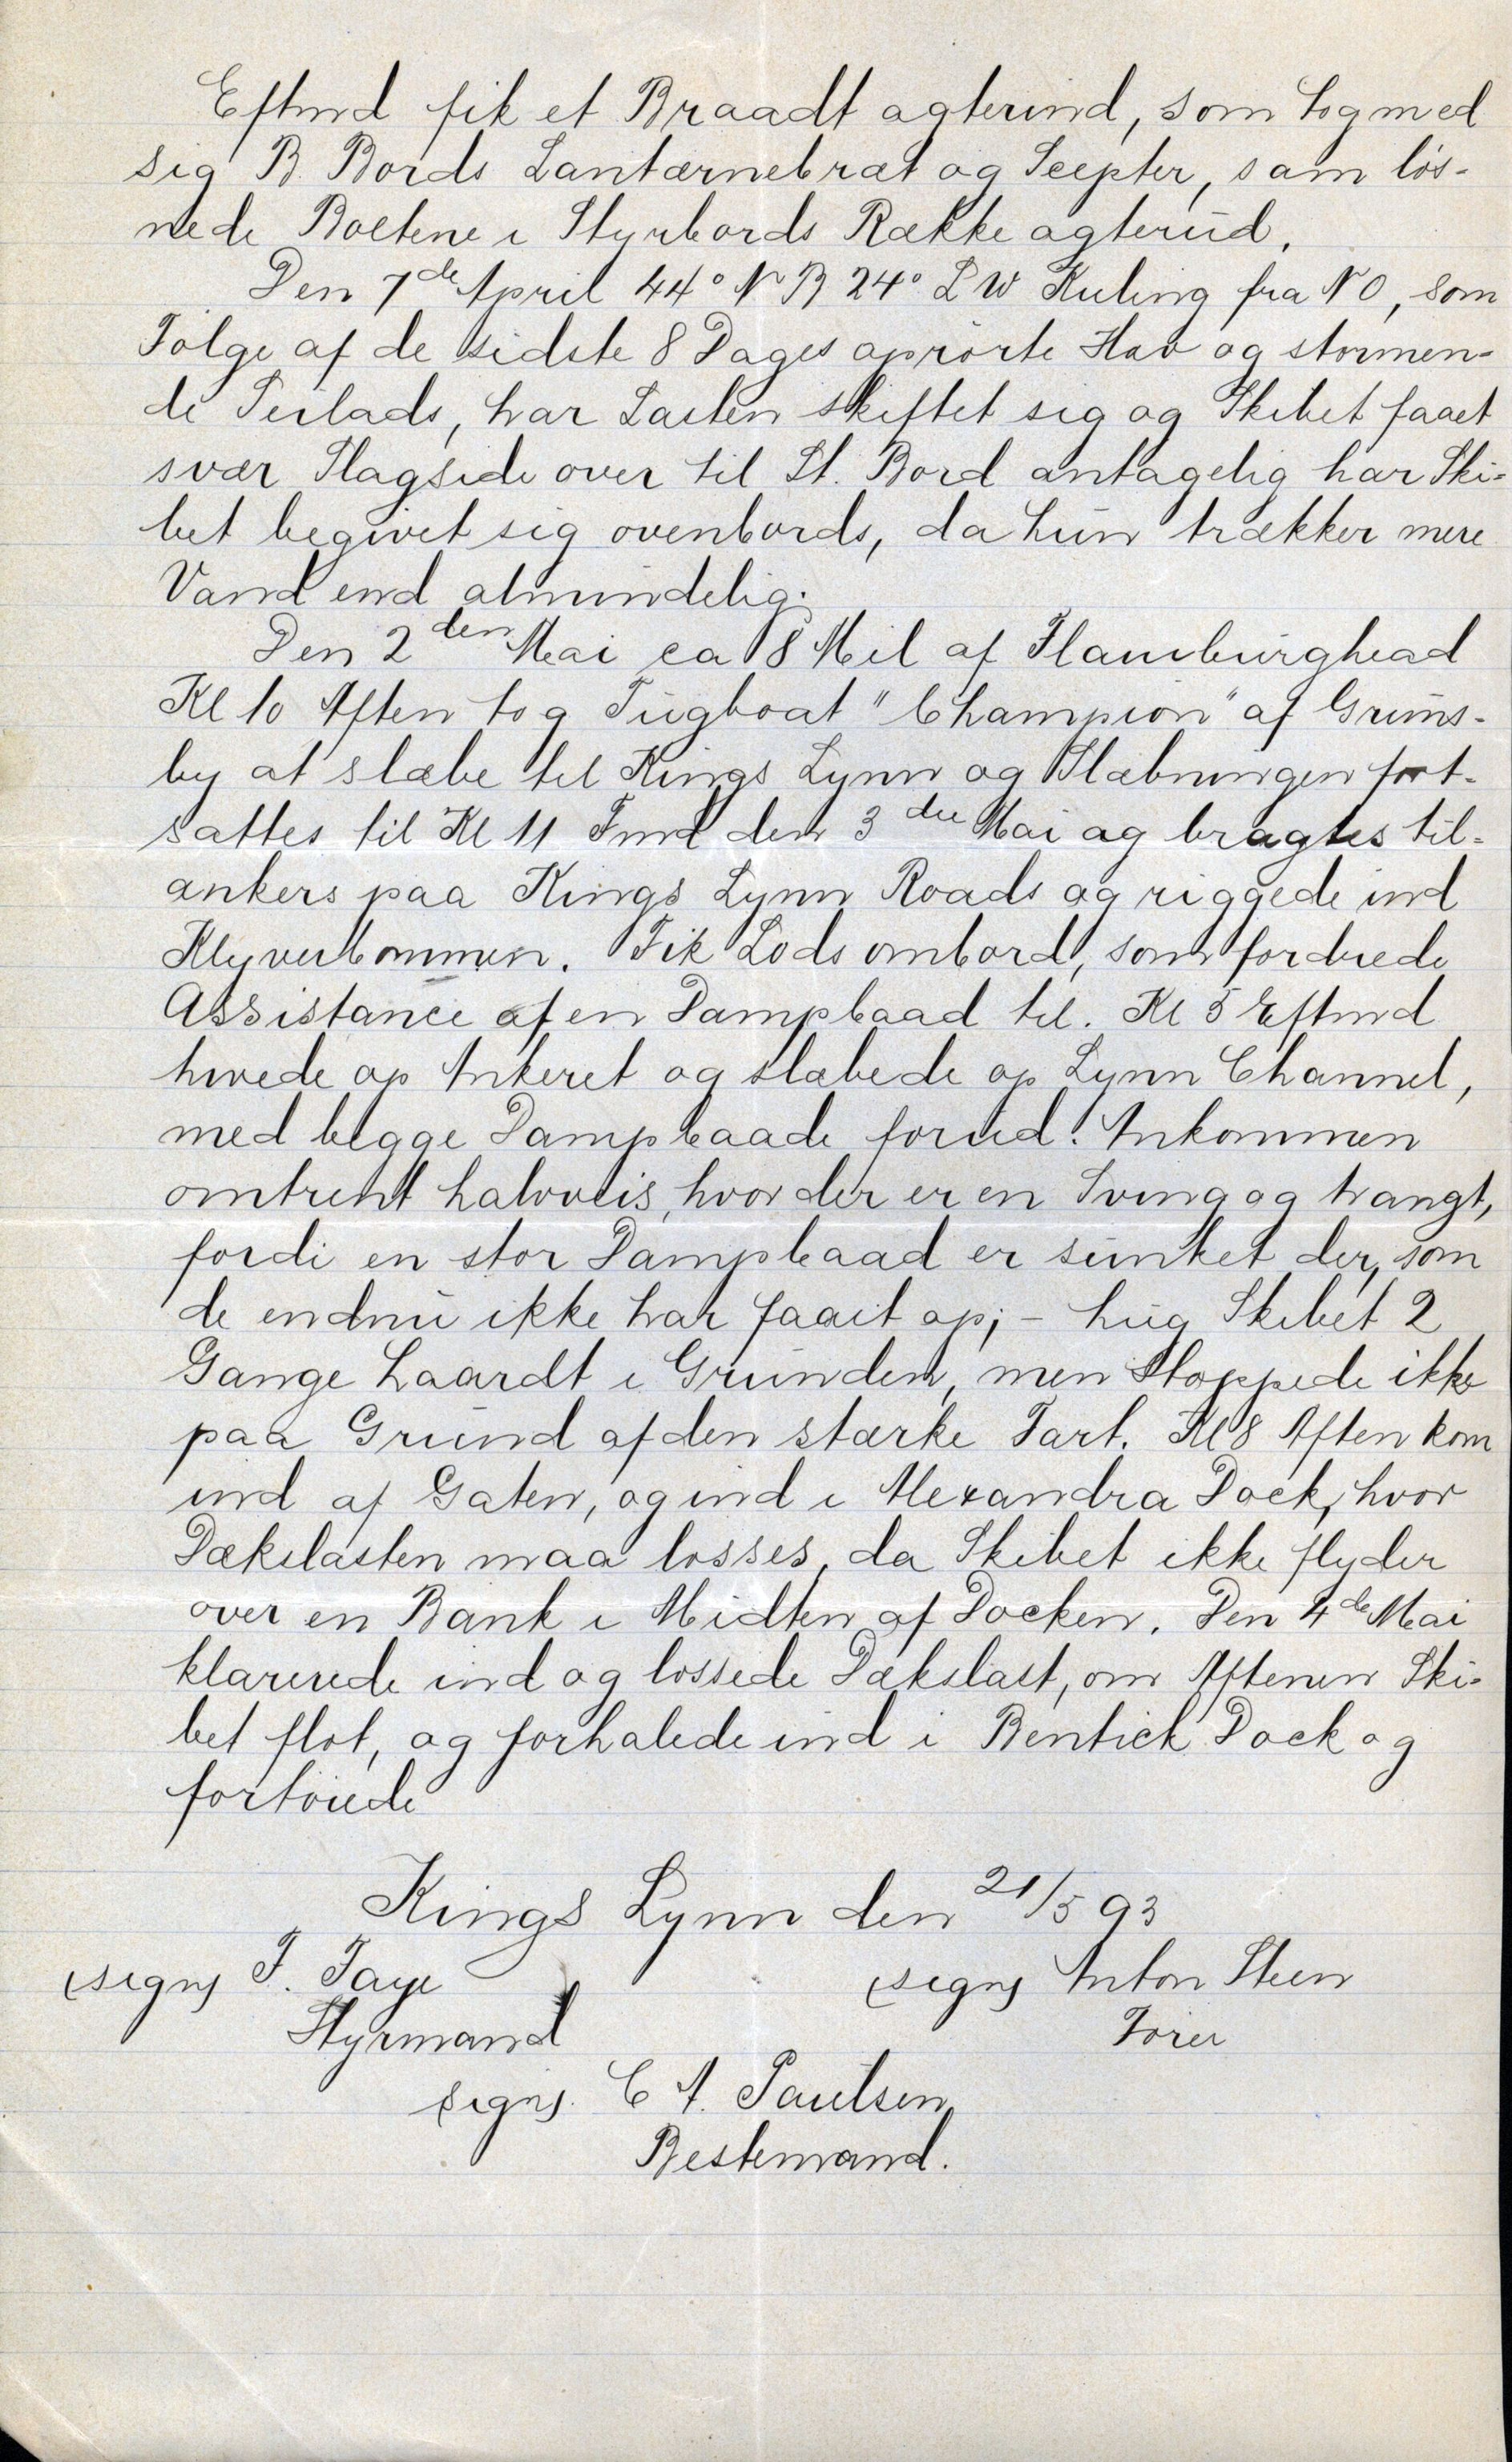 Eftmd fik et Braadt agterind, som tog med
sig B. Bords Lantærnebræt og Scepter, sam løs-
nede Boltene i Styrbords Række agterud.
Den 7de April 44° N B 24° L W Kuling fra N O, som
Følge af de sidste 8 Dages oprørte Hav og stormen-
de Seilads, har Lasten skiftet sig og Skibet faaet
svær Slagside over til St. Bord antagelig har Ski-
bet begivet sig ovenbords, da hun trækker mere
Vand end almindelig.
Den 2den Mai ca 8 Mil af Flamburghead
Kl 10 Aften tog Tugboat "Champion" af Grims-
by at slæbe til Kings Lynn og Slæbningen fort-
sattes til Kl 11 Fmd den 3die Mai og bragtes til-
ankers paa Kings Lynn Roads og riggede ind
Klyverbommen. Fik Lods ombord, som fordrede
Assistance af en Dampbaad til. Kl 5 Eftmd
hivede op Ankeret og slæbede op Lynn Channel,
med begge Dampbaade forud. Ankommen
omtrent halvveis, hvor der er en Sving og trangt,
fordi en stor Dampbaad er sunket der, som
de endnu ikke har faaet op; - hug Skibet 2
Gange haardt i Grunden, men stoppede ikke
paa Grund af den stærke Fart. Kl 8 Aften kom
ind af Gaten, og ind i Alexandra Dock, hvor
Dækslasten maa losses, da Skibet ikke flyder
over en Bank i Midten af Docken. Den 4de Mai
klarerede ind og lossede Dækslast, om Aftenen Ski-
bet flot, og forhalede ind i Bentick Dock og
fortøiede
Kings Lynn den 21/5 93
(sign) F. Taye (sign) Anton Steen
Styrmand Fører
(sign). C A. Paulsen
Bestemand.